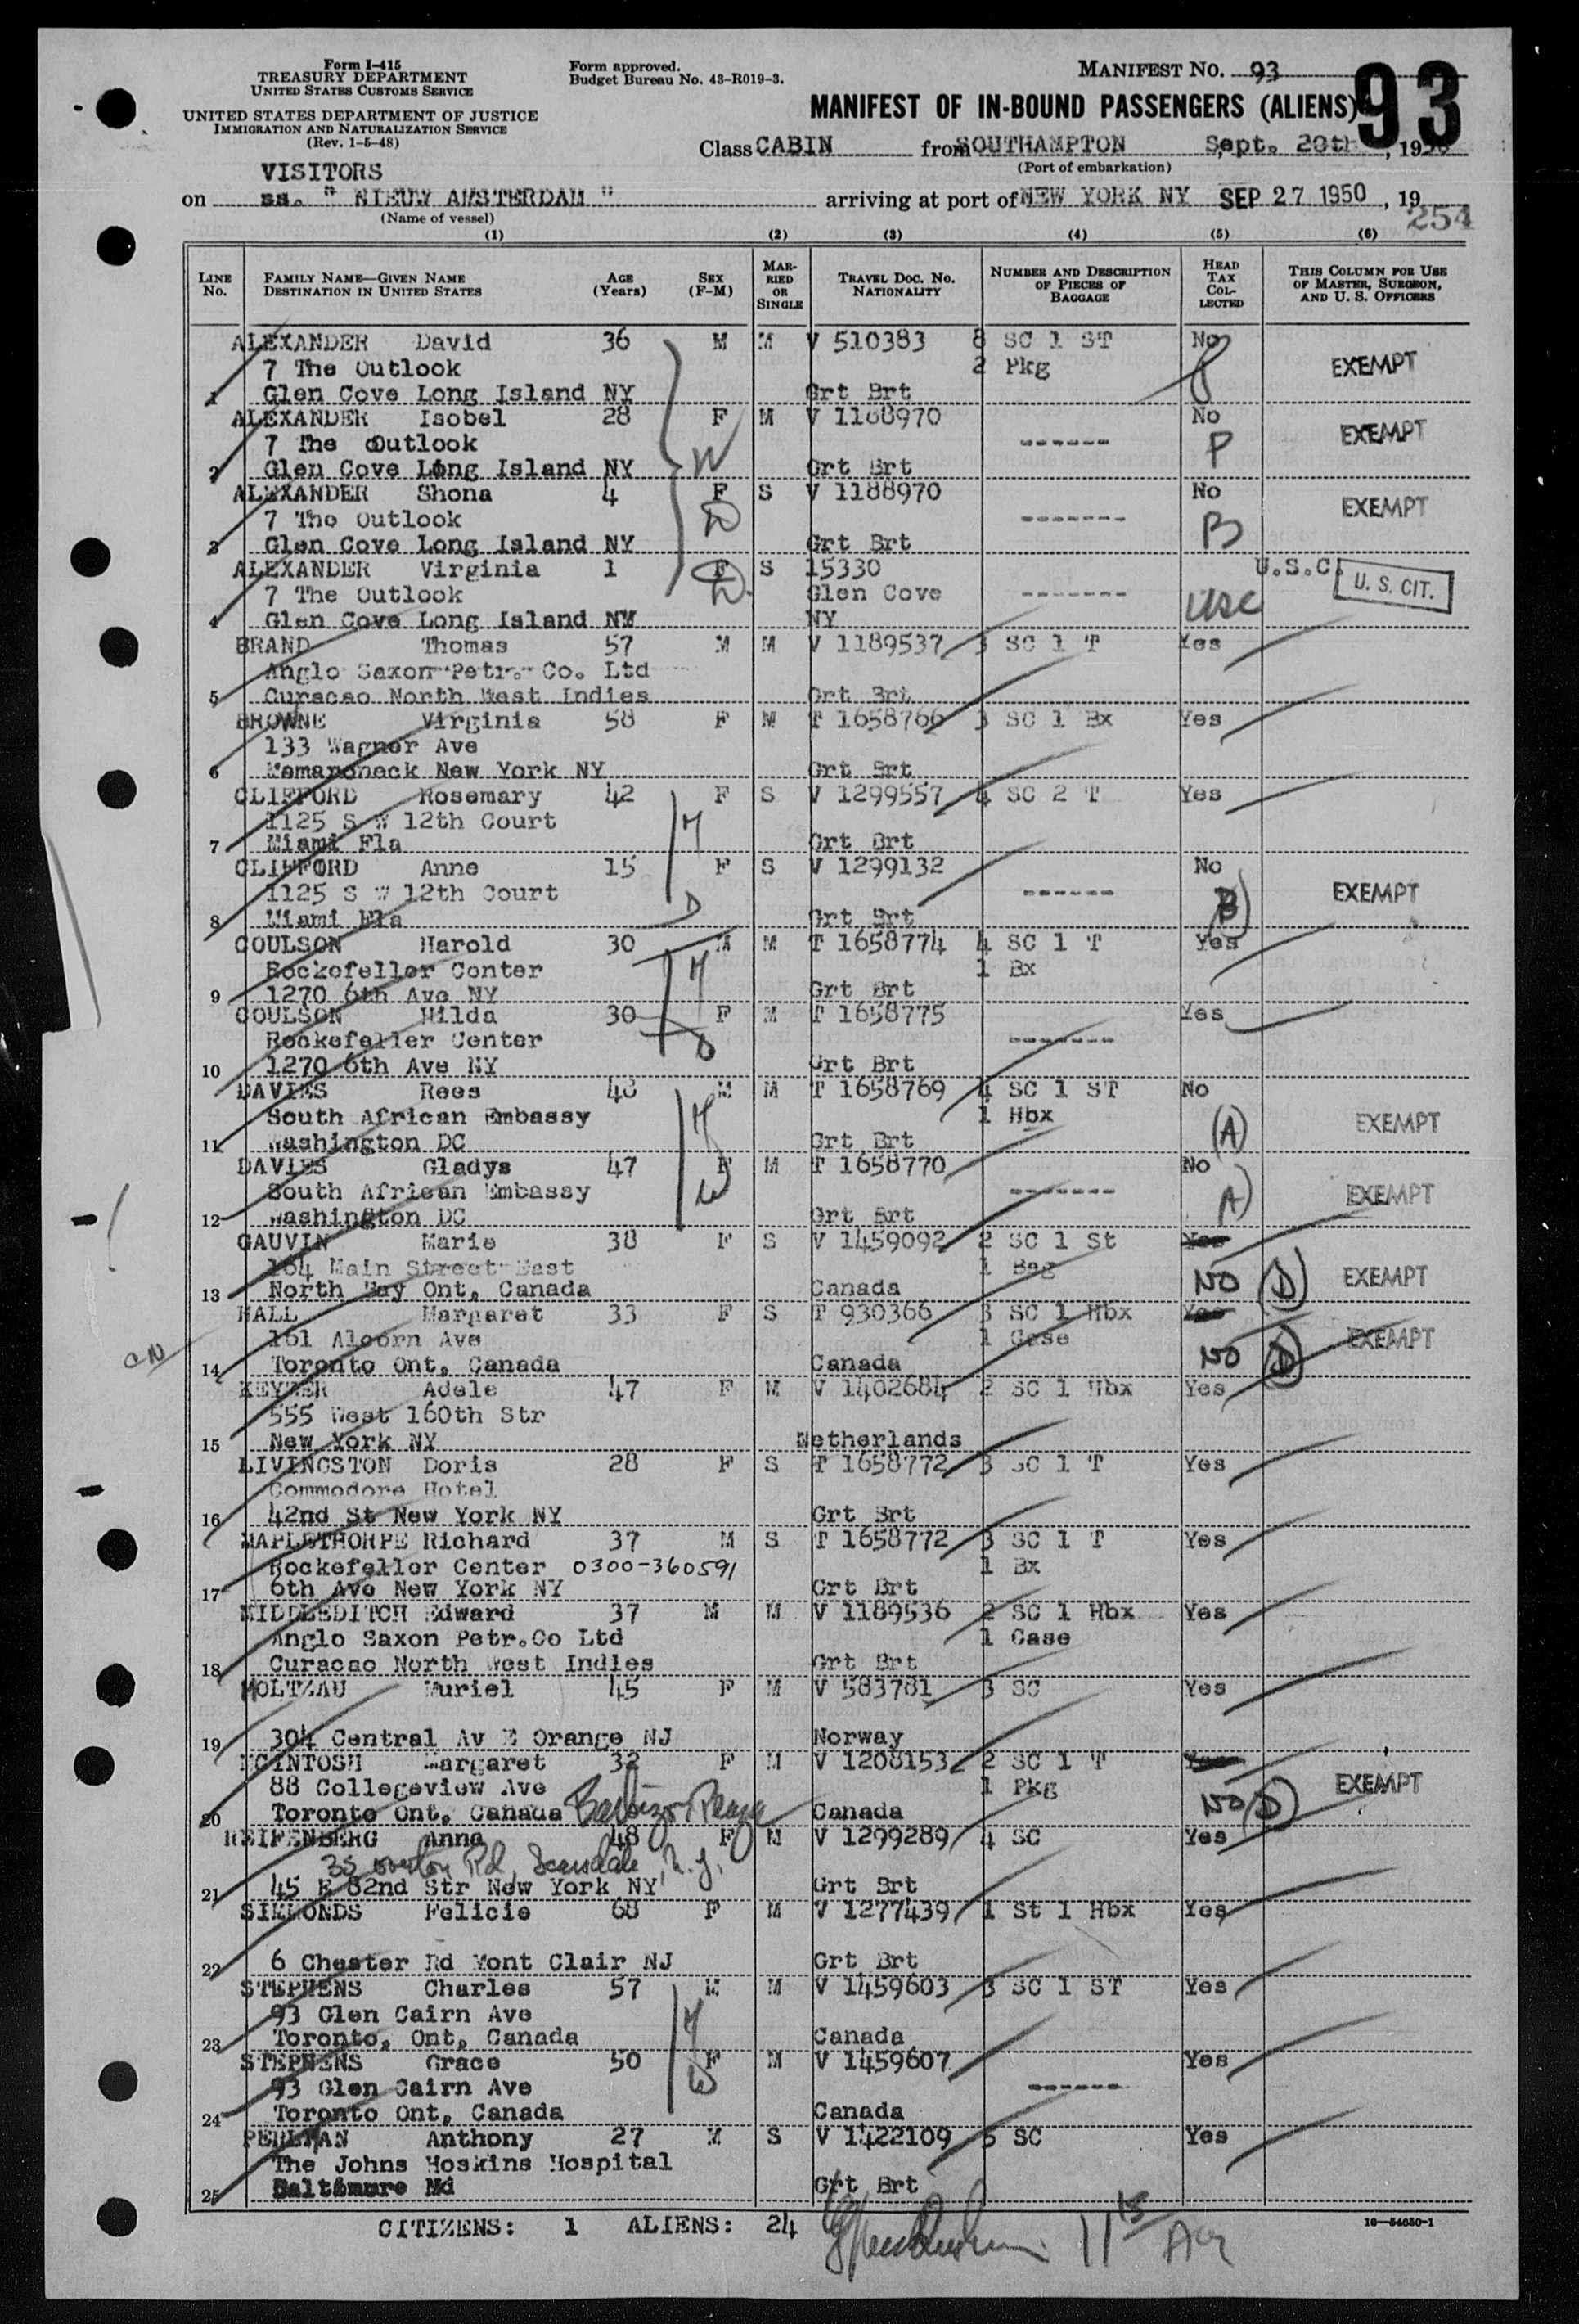 Form I-415
TREASURY DEPARTMENT
UNITED STATES CUSTOMS SERVICE
Form approved.
Budget Bureau No. 43-R019-3.
MANIFEST NO. 93
93
UNITED STATES DEPARTMENT OF JUSTICE
IMMIGRATION AND NATURALIZATION SERVICE
(Rev. 1-5-48)
MANIFEST OF IN-BOUND PASSENGERS (ALIENS)
Class CABIN from SOUTHAMPTON Sept. 20th, 1950
(Port of embarkation)
VISITORS
on ss. " NIEUW AMSTERDAM " arriving at port of NEW YORK NY SEP 27 1950, 19
(Name of vessel)
254
(1) (2) (3) (4) (5) (6)
LINE NO. FAMILY NAME—GIVEN NAME DESTINATION IN UNITED STATES AGE (Years) SEX (F-M) MARRIED OR SINGLE TRAVEL DOC. NO. NATIONALITY NUMBER AND DESCRIPTION OF PIECES OF BAGGAGE HEAD TAX COLLECTED THIS COLUMN FOR USE OF MASTER, SURGEON, AND U. S. OFFICERS
ALEXANDER David 36 M M V 510383 8 SC 1 ST No
7 The Outlook 2 Pkg EXEMPT
1 Glen Cove Long Island NY Grt Brt
ALEXANDER Isobel 28 F M V 1168970 No
7 The Outlook W ------ P EXEMPT
2 Glen Cove Long Island NY Grt Brt
ALEXANDER Shona 4 F S V 1188970 No
7 The Outlook D ------- B EXEMPT
3 Glen Cove Long Island NY Grt Brt
ALEXANDER Virginia 1 F S 15330 U.S.C. U. S. CIT.
7 The Outlook D Glen Cove ------- USC
4 Glen Cove Long Island NY NY
BRAND Thomas 57 M M V 1189537 3 SC 1 T Yes
Anglo Saxon Petr. Co. Ltd
5 Curacao North West Indies Grt Brt
BROWNE Virginia 58 F M T 1658766 3 SC 1 Bx Yes
133 Wagner Ave
6 Mamaroneck New York NY Grt Brt
CLIFFORD Rosemary 42 F S V 1299557 4 SC 2 T Yes
1125 S W 12th Court
7 Miami Fla Grt Brt
CLIFFORD Anne 15 F S V 1299132 No
1125 S W 12th Court D ------ B EXEMPT
8 Miami Fla Grt Brt
COULSON Harold 30 M M T 1658774 4 SC 1 T Yes
Rockefeller Center 1 Bx
9 1270 6th Ave NY Grt Brt
COULSON Hilda 30 F M T 1658775 Yes
Rockefeller Center -------
10 1270 6th Ave NY Grt Brt
DAVIES Rees 48 M M T 1658769 4 SC 1 ST No
South African Embassy H 1 Hbx (A) EXEMPT
11 Washington DC Grt Brt
DAVIES Gladys 47 F M T 1658770 No
South African Embassy W ------- A) EXEMPT
12 Washington DC Grt Brt
GAUVIN Marie 38 F S V 1459092 2 SC 1 St Yes
164 Main Street East 1 Bag NO (D) EXEMPT
13 North Bay Ont, Canada Canada
HALL Margaret 33 F S T 930366 3 SC 1 Hbx Yes
161 Alcorn Ave 1 Case NO (D) EXEMPT
14 Toronto Ont, Canada Canada
KEYZER Adele 47 F M V 1402684 2 SC 1 Hbx Yes
555 West 160th Str
15 New York NY Netherlands
LIVINGSTON Doris 28 F S T 1658772 3 SC 1 T Yes
Commodore Hotel
16 42nd St New York NY Grt Brt
MAPLETHORPE Richard 37 M S T 1658772 3 SC 1 T Yes
Rockefeller Center 0300-360591 1 Bx
17 6th Ave New York NY Grt Brt
MIDDLEDITCH Edward 37 M M V 1189536 2 SC 1 Hbx Yes
Anglo Saxon Petr.Co Ltd 1 Case
18 Curacao North West Indies Grt Brt
MOLTZAU Muriel 45 F M V 583781 3 SC Yes
19 304 Central Av E Orange NJ Norway
MCINTOSH Margaret 32 F M V 1208153 2 SC 1 T Yes
88 Collegeview Ave 1 Pkg NO (D) EXEMPT
20 Toronto Ont, Canada Barbizon Plaza Canada
REIFENBERG Anna 48 F M V 1299289 4 SC Yes
35 Rd, Scarsdale, N.Y.
21 45 E 82nd Str New York NY Grt Brt
SIMMONDS Felicie 68 F M V 1277439 1 St 1 Hbx Yes
22 6 Chester Rd Mont Clair NJ Grt Brt
STEPHENS Charles 57 M M V 1459603 3 SC 1 ST Yes
93 Glen Cairn Ave H
23 Toronto, Ont, Canada Canada
STEPHENS Grace 50 F M V 1459607 Yes
93 Glen Cairn Ave W ------
24 Toronto Ont, Canada Canada
PERLMAN Anthony 27 M S V 1422109 5 SC Yes
The Johns Hoskins Hospital
25 Baltimore Md Grt Brt
CITIZENS: 1 ALIENS: 24
16—54650-1